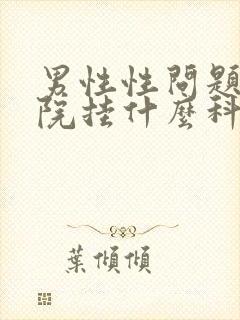 男性性問題
院挂什麼科
葉傾傾